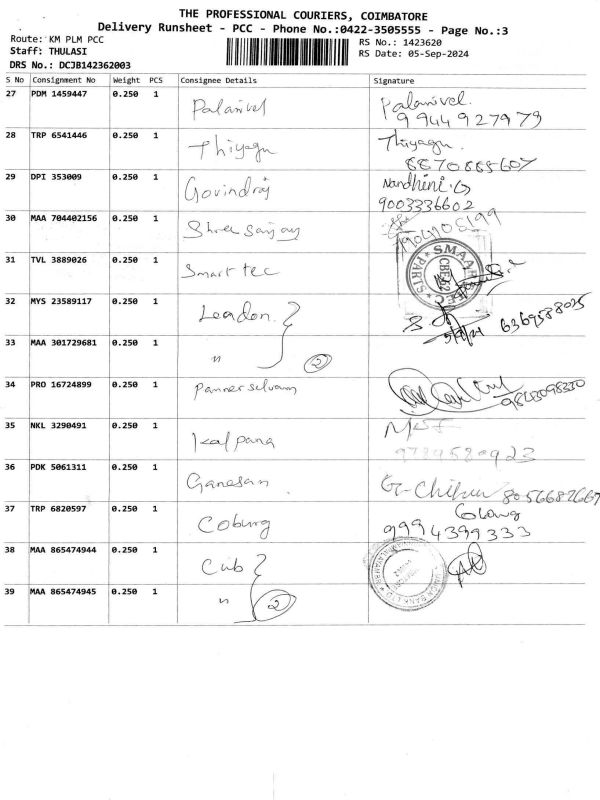 THE PROFESSIONAL COURIERS, COIMBATORE
Delivery Runsheet - PCC - Phone No.:0422-3505555 - Page No.:3
Route: KM PLM PCC
RS No.: 1423620
Staff: THULASI
RS Date: 05-Sep-2024
DRS No.: DCJB142362003
S No Consignment No Weight PCS Consignee Details Signature
27 PDM 1459447 0.250 1 Palanivel Palanivel.
9944927979
28 TRP 6541446 0.250 1 Thiyagu Thiyagu.
8870885607
29 DPI 353009 0.250 1 Govindraj Nandhini.G
9003336602
30 MAA 704402156 0.250 1 Shree sanjay
31 TVL 3889026 0.250 1 Smart tec
32 MYS 23589117 0.250 1 Leadon. 6369588025
5/9/24
33 MAA 301729681 0.250 1 " 2
34 PRO 16724899 0.250 1 Panner selvam 9843098330
35 NKL 3290491 0.250 1 Kalpana
9789580923
36 PDK 5061311 0.250 1 Ganesan 8056682667
37 TRP 6820597 0.250 1 Coburg
9994399333
38 MAA 865474944 0.250 1 Cub
39 MAA 865474945 0.250 1 " 2